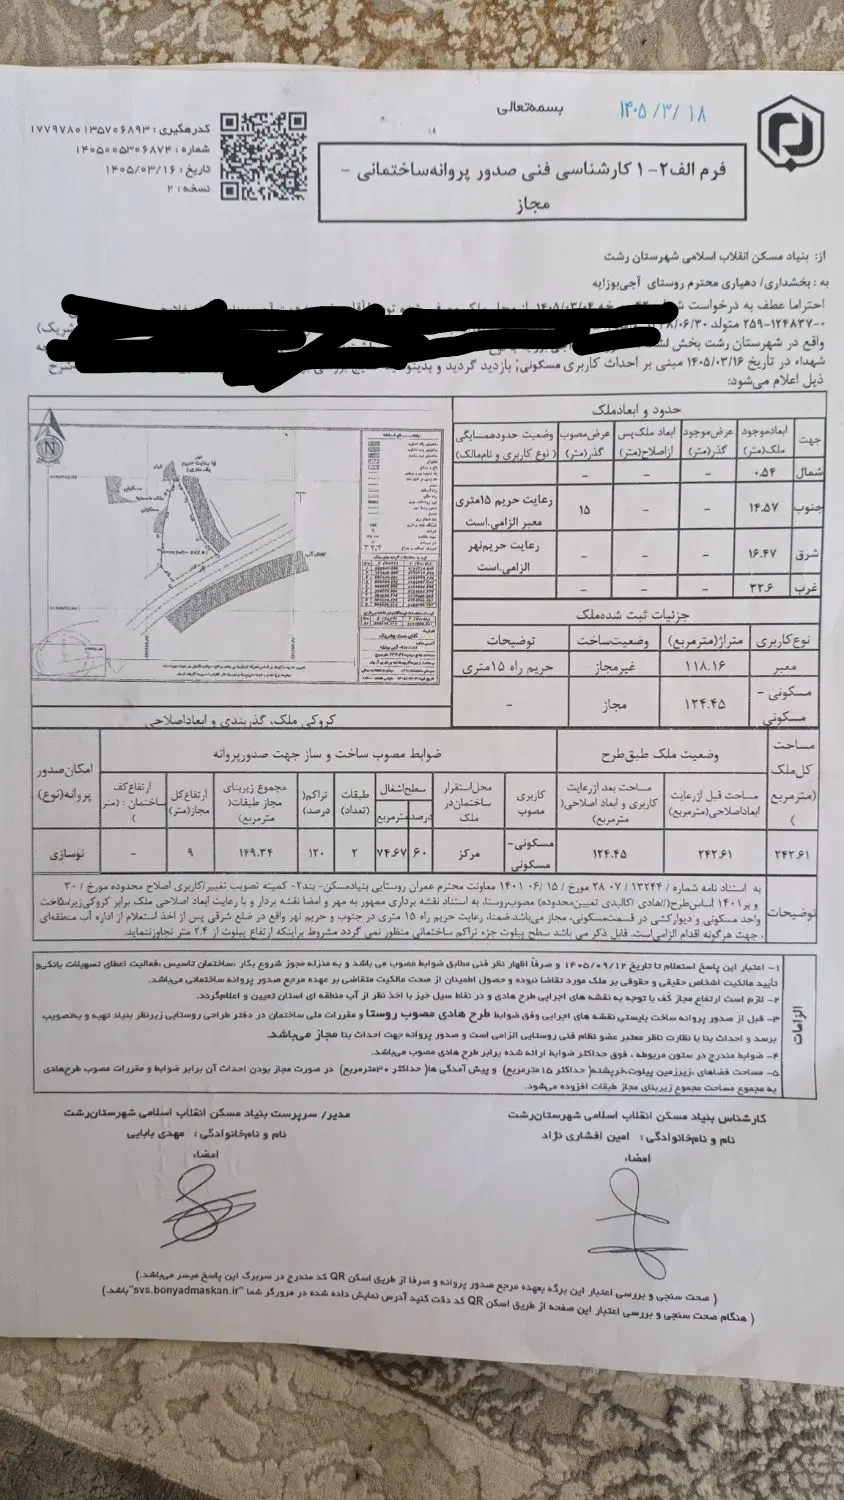 بسمه‌تعالی
۱۴۰۵/۳/۱۸
کدرهگیری : ۱۷۷۹۷۸۰۱۳۵۷۰۶۸۹۳
شماره : ۱۴۰۵۰۰۵۳۰۶۸۷۴
تاریخ : ۱۴۰۵/۰۳/۱۶
نسخه : ۲
فرم الف۲-۱ کارشناسی فنی صدور پروانه‌ساختمانی -
مجاز
از: بنیاد مسکن انقلاب اسلامی شهرستان رشت
به : بخشداری/ دهیاری محترم روستای آجی‌بوزایه
احتراما عطف به درخواست
۲۵۹-۱۲۴۸۳۷-۰ متولد
شریک)
واقع در شهرستان رشت بخش
شهداء در تاریخ ۱۴۰۵/۰۳/۱۶ مبنی بر احداث کاربری مسکونی; بازدید گردید و
شرح
ذیل اعلام می‌شود:
حدود و ابعادملک
جهت ابعادموجود ملک(متر) عرض‌موجود گذر(متر) ابعاد ملک‌پس ازاصلاح(متر) عرض‌مصوب گذر(متر) وضعیت حدودهمسایگی ( نوع کاربری و نام‌مالک)
شمال ۰.۵۴ - - -
جنوب ۱۴.۵۷ - - ۱۵ رعایت حریم ۱۵متری معبر الزامی.است
شرق ۱۶.۴۷ - - - رعایت حریم‌نهر الزامی.است
غرب ۳۲.۶ - - -
جزئیات ثبت شده‌ملک
نوع‌کاربری متراژ(مترمربع) وضعیت‌ساخت توضیحات
معبر ۱۱۸.۱۶ غیرمجاز حریم راه ۱۵متری
مسکونی - مسکونی ۱۲۴.۴۵ مجاز -
کروکی ملک، گذربندی و ابعاداصلاحی
مساحت کل‌ملک (مترمربع) وضعیت ملک طبق‌طرح ضوابط مصوب ساخت و ساز جهت صدورپروانه امکان‌صدور پروانه(نوع)
مساحت قبل ازرعایت ابعاداصلاحی(مترمربع) مساحت بعد ازرعایت کاربری و ابعاد اصلاحی( مترمربع) کاربری مصوب محل‌استقرار ساختمان‌در ملک سطح‌اشغال درصد مترمربع طبقات (تعداد) تراکم( درصد) مجموع زیربنای مجاز طبقات( مترمربع) ارتفاع‌کل مجاز(متر) ارتفاع‌کف ساختمان : (متر )
۲۴۲.۶۱ ۲۴۲.۶۱ ۱۲۴.۴۵ مسکونی- مسکونی مرکز ۶۰ ۷۴.۶۷ ۲ ۱۲۰ ۱۴۹.۳۴ ۹ - نوسازی
توضیحات
به استناد نامه شماره / ۱۳۲۴۴ / ۰۷ ۲۸ مورخ / ۱۵ /۰۶ ۱۴۰۱ معاونت محترم عمران روستایی بنیادمسکن- بند۲- کمیته تصویب تغییر/کاربری اصلاح محدوده مورخ / ۳۰
و بر۱۴۰۱ اساس‌طرح(/هادی /کالبدی تعیین‌محدوده) مصوب‌روستا، به استناد نقشه برداری ممهور به مهر و امضا نقشه بردار و با رعایت ابعاد اصلاحی ملک برابر کروکی‌زیر/ساخت
واحد مسکونی و دیوارکشی در قسمت‌مسکونی، مجاز می‌باشد.ضمنا، رعایت حریم راه ۱۵ متری در جنوب و حریم نهر واقع در ضلع شرقی پس از اخذ استعلام از اداره آب منطقه‌ای
، جهت هرگونه اقدام الزامی‌است. قابل ذکر می باشد سطح پیلوت جزء تراکم ساختمانی منظور نمی گردد مشروط براینکه ارتفاع پیلوت از ۲.۴ متر تجاوزننماید.
الزامات
۱- اعتبار این پاسخ استعلام تا تاریخ ۱۴۰۵/۰۹/۱۲ و صرفاً اظهار نظر فنی مطابق ضوابط مصوب می باشد و به منزله مجوز شروع بکار ،ساختمان تاسیس ،فعالیت اعطای تسهیلات بانکی‌و
تأیید مالکیت اشخاص حقیقی و حقوقی بر ملک مورد تقاضا نبوده و حصول اطمینان از صحت مالکیت متقاضی بر عهده مرجع صدور پروانه ساختمانی می‌باشد.
۲- لازم است ارتفاع مجاز کف با توجه به نقشه های اجرایی طرح هادی و در نقاط سیل خیز با اخذ نظر از آب منطقه ای استان تعیین و اعلام‌گردد.
۳- قبل از صدور پروانه ساخت بایستی نقشه های اجرایی وفق ضوابط طرح هادی مصوب روستا و مقررات ملی ساختمان در دفتر طراحی روستایی زیرنظر بنیاد تهیه و به‌تصویب
برسد و احداث بنا با نظارت ناظر معتبر عضو نظام فنی روستایی الزامی است و صدور پروانه جهت احداث بنا مجاز می‌باشد.
۴- ضوابط مندرج در ستون مربوطه ، فوق حداکثر ضوابط ارائه شده برابر طرح هادی مصوب می‌باشد.
۵- مساحت فضاهای ،زیرزمین پیلوت،خرپشته( حداکثر ۱۵مترمربع) و پیش آمدگی ها(حداکثر ۳۰مترمربع) در صورت مجاز بودن احداث آن برابر ضوابط و مقررات مصوب طرح‌هادی
به مجموع مساحت مجموع زیربنای مجاز طبقات افزوده می‌شود.
کارشناس بنیاد مسکن انقلاب اسلامی شهرستان‌رشت
نام و نام‌خانوادگی : امین افشاری نژاد
امضاء
مدیر/ سرپرست بنیاد مسکن انقلاب اسلامی شهرستان‌رشت
نام و نام‌خانوادگی : مهدی بابایی
امضاء
( صحت سنجی و بررسی اعتبار این برگه بعهده مرجع صدور پروانه و صرفا از طریق اسکن QR کد مندرج در سربرگ این پاسخ میسر می‌باشد.)
( هنگام صحت سنجی و بررسی اعتبار این صفحه از طریق اسکن QR کد دقت کنید آدرس نمایش داده شده در مرورگر شما "svs.bonyadmaskan.ir"باشد.)